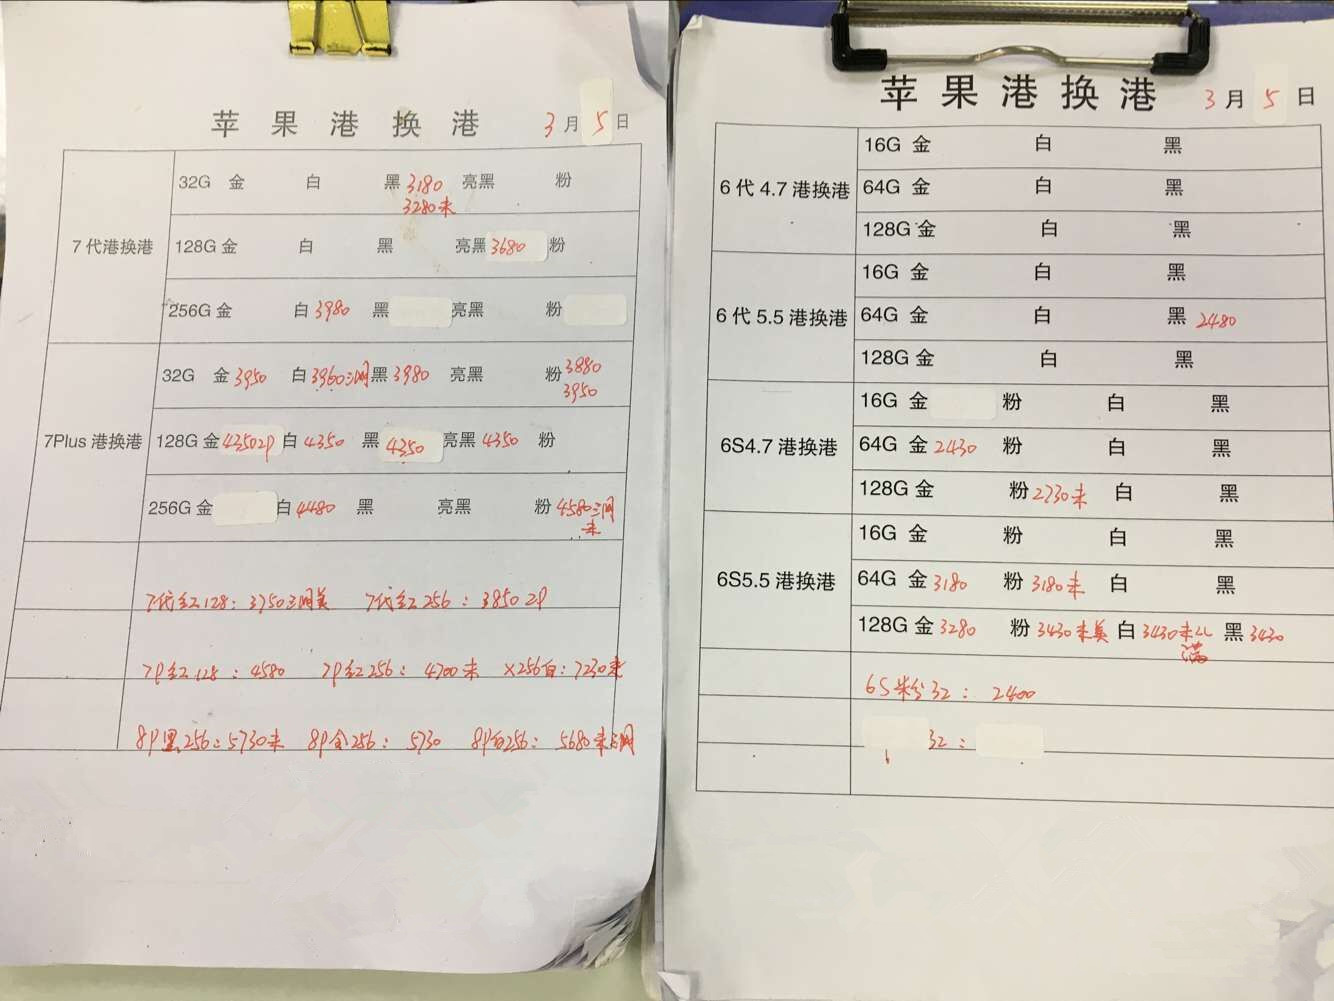 苹果港换港 3月5日
7代港换港
32G 金 白 黑3180 亮黑 粉
3280未
128G金 白 黑 亮黑3680 粉
256G金 白3980 黑 亮黑 粉
7Plus港换港
32G 金3950 白3960三网 黑3980 亮黑 粉3880
3950
128G金43502P 白4350 黑4350 亮黑4350 粉
256G金 白4480 黑 亮黑 粉4580三网
未
7代红128：3750三网美 7代红256：3850 2P
7P红128：4580 7P红256：4700未 X256白：7230未
8P黑256：5730未 8P金256：5730 8P白256：5680未三网
苹果港换港 3月5日
6代4.7港换港
16G 金 白 黑
64G 金 白 黑
128G金 白 黑
6代5.5港换港
16G 金 白 黑
64G 金 白 黑2480
128G金 白 黑
6S4.7港换港
16G 金 粉 白 黑
64G 金2430 粉 白 黑
128G金 粉2730未 白 黑
6S5.5港换港
16G 金 粉 白 黑
64G 金3180 粉3180未 白 黑
128G金3280 粉3430未美 白3430未 黑3430
满
6S粉32：2400
32：